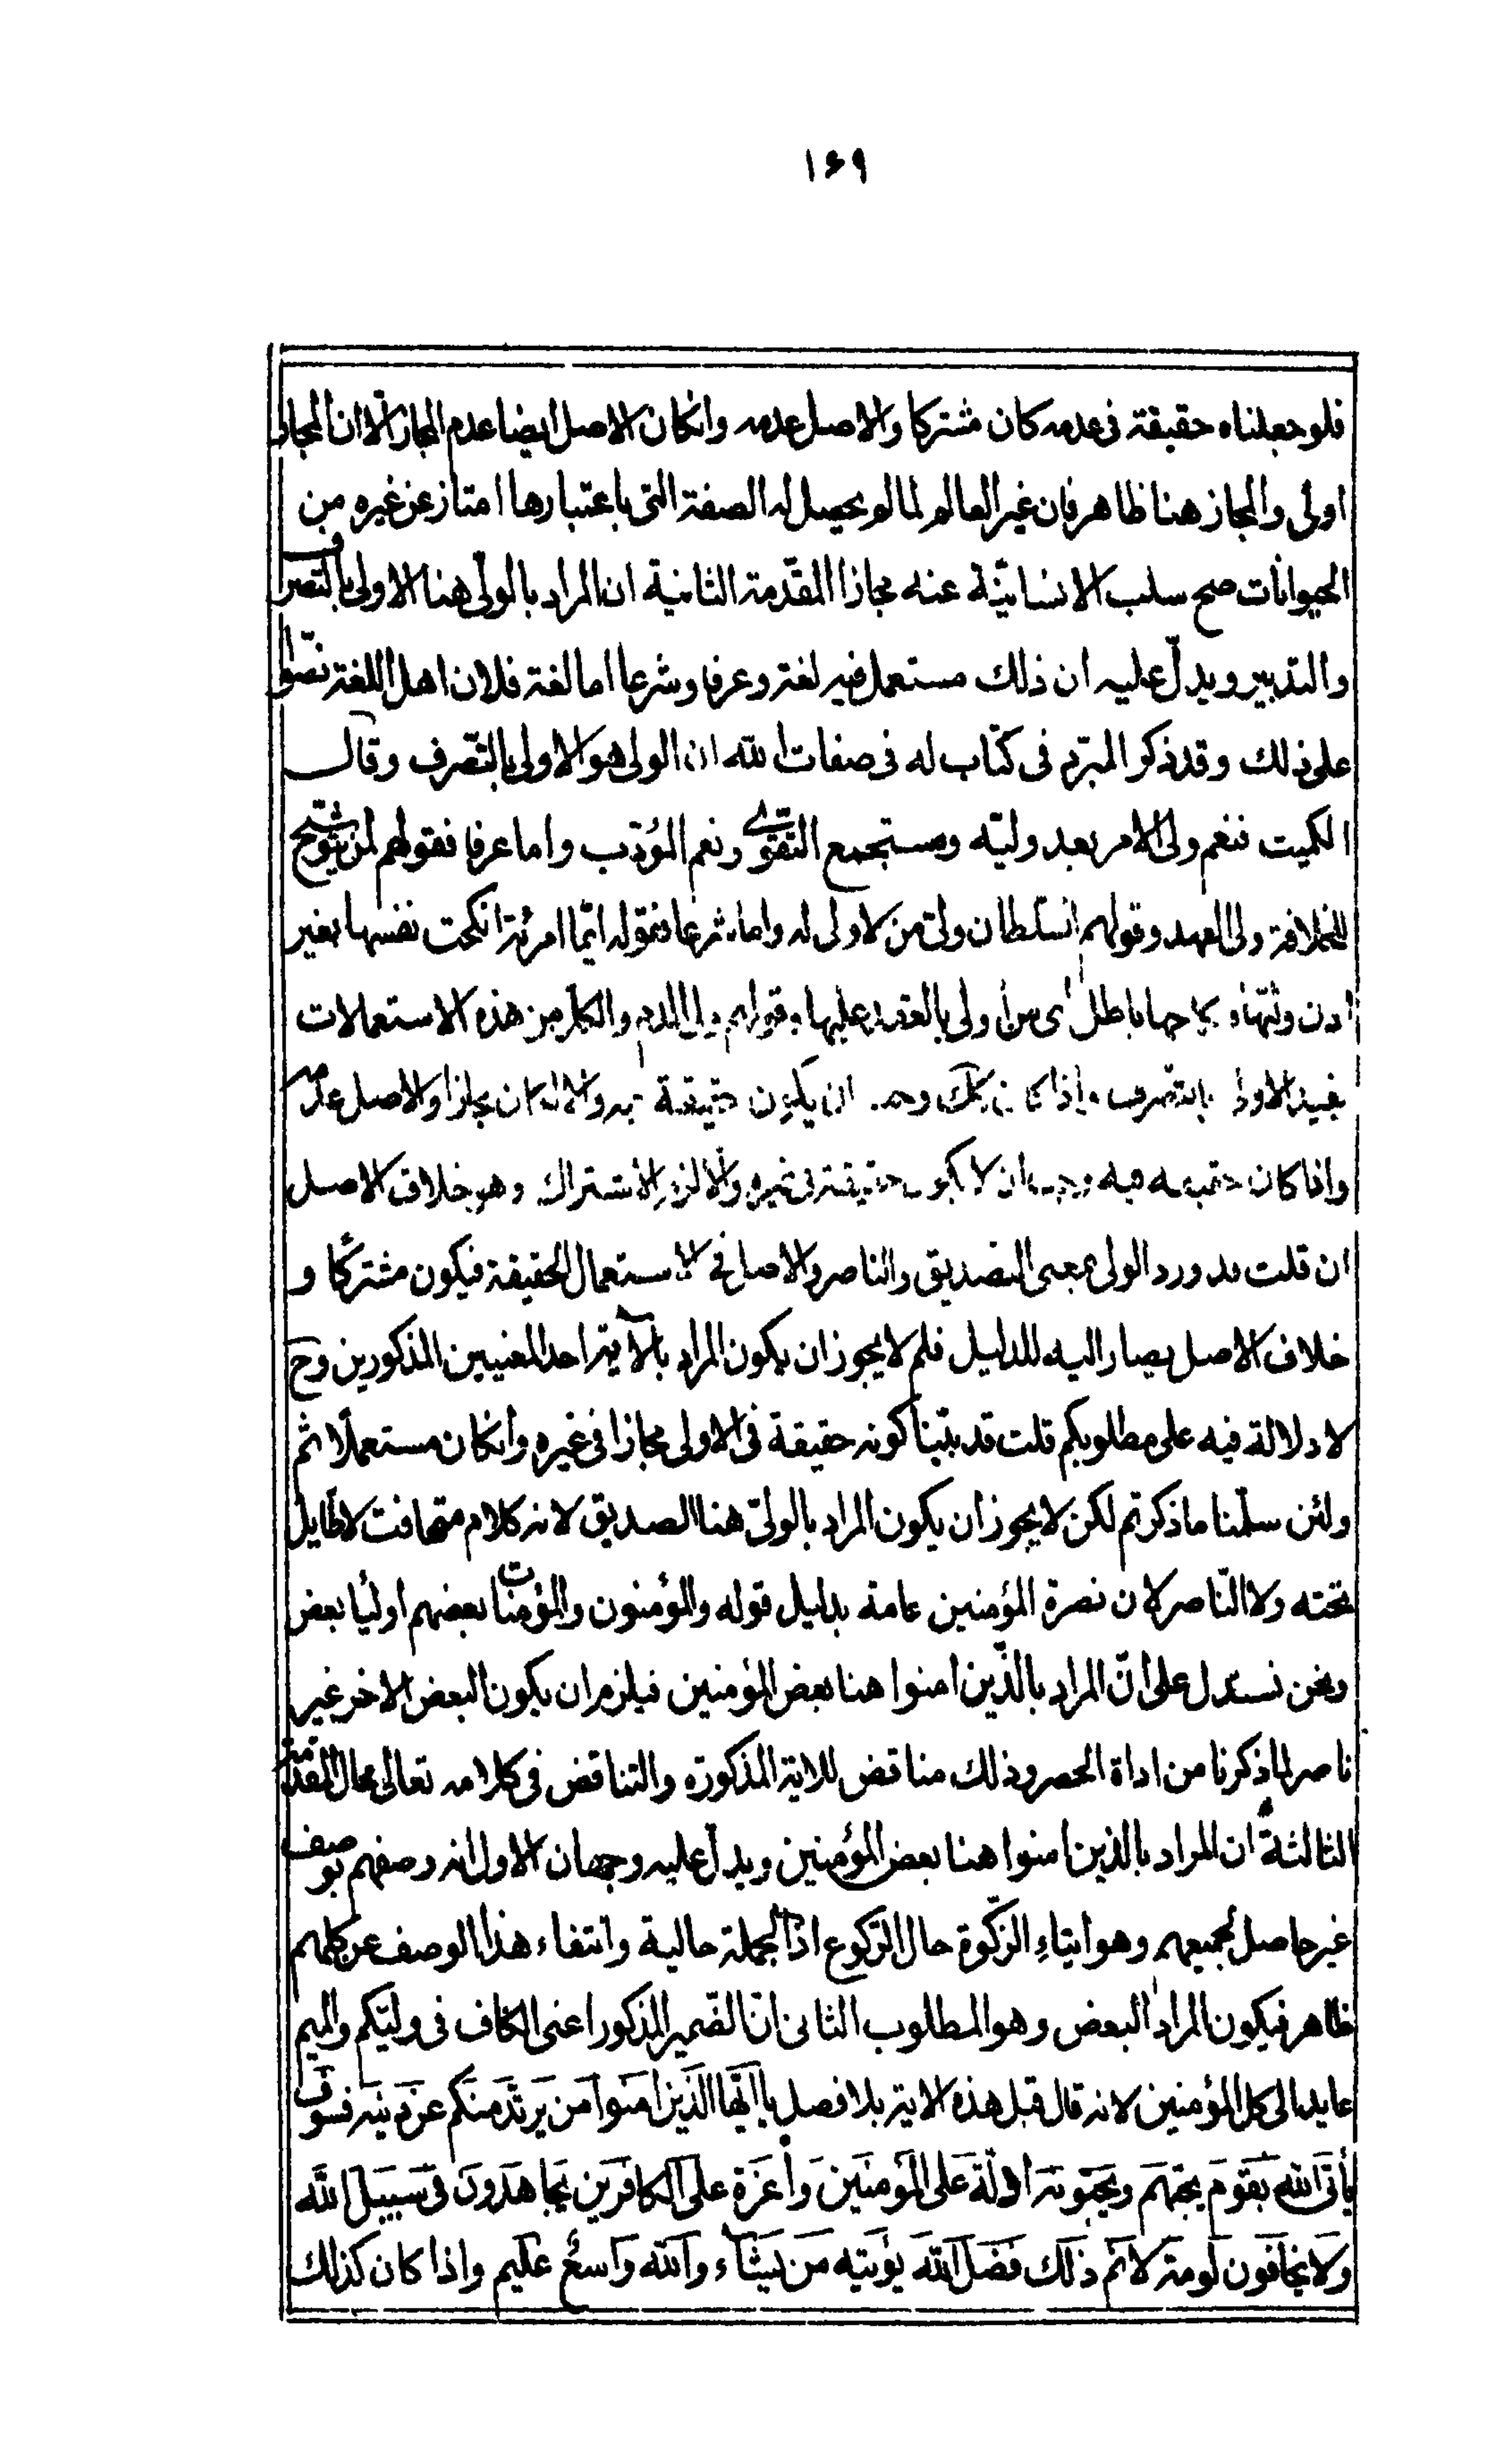 ۱۶۹
فلو جعلناه حقيقة فى عدمه كان مشتركا والاصل عدمه وانكان الاصل ايضا عدم المجاز الّا ان المجاز
اولى والمجاز هنا ظاهر فان غير العالم لما لم يحصل له الصفة التى باعتبارها امتاز عن غيره من
الحيوانات صح سلب الانسانيّة عنه مجازا المقدّمة الثانية ان المراد بالولىّ هنا الاولى بالتصرف
والتدبير ويدلّ عليه ان ذلك مستعمل فيه لغة وعرفا وشرعا اما لغة فلان اهل اللغة نصّوا
على ذلك وقد ذكر المبرّد فى كتاب له فى صفات الله ان الولى هو الاولى بالتّصرف وقال
الكميت فنعم ولى الامر بعد وليّه ومستجمع التقوى ونعم المؤدّب واما عرفا فقولهم لمن يترشّح
للخلافة ولى العهد وقولهم السّلطان ولىّ من لا ولى له واما شرعا فقوله ايّما امرئة انكحت نفسها بغير
اذن وليّها فنكاحها باطل اى من اولى بالعقد عليها وقولهم ولى الدم والكل من هذه الاستعمالات
يفيد الاولى بالتصرف واذا كان كك وجب ان يكون حقيقة فيه والا لكان مجازا والاصل عدمه
واذا كان حقيقة فيه وجب ان لا يكون حقيقة فى غيره والّا لزم الاشتراك وهو خلاف الاصل
ان قلت قد ورد الولى بمعنى الصديق والناصر والاصل فى الاستعمال الحقيقة فيكون مشتركا و
خلاف الاصل يصار اليه للدليل فلم لا يجوز ان يكون المراد بالآية احد المعنيين المذكورين وح
لا دلالة فيه على مطلوبكم قلت قد بيّنا كونه حقيقة فى الاولى مجازا فى غيره وانكان مستعملا ثم
ولئن سلّمنا ما ذكرتم لكن لا يجوز ان يكون المراد بالولىّ هنا الصديق لانه كلام متهافت لا طايل
تحته ولا النّاصر لان نصرة المؤمنين عامة بدليل قوله والمؤمنون والمؤمنات بعضهم اولياء بعض
ونحن نستدل على انّ المراد بالّذين امنوا هنا بعض المؤمنين فيلزم ان يكون البعض الاخر غير
ناصر لما ذكرنا من اداة الحصر وذلك مناقض للاية المذكورة والتناقض فى كلامه تعالى محال المقدّمة
الثالثة ان المراد بالذين امنوا هنا بعض المؤمنين ويدلّ عليه وجهان الاول انه وصفهم بوصف
غير حاصل لجميعهم وهو ايتاء الزّكوة حال الرّكوع اذ الجملة حالية وانتفاء هذا الوصف عن كلهم
ظاهر فيكون المراد البعض وهو المطلوب الثانى انّ الضّمير المذكور اعنى الكاف فى وليّكم والميم
عايد الى كل المؤمنين لانه قال قبل هذه الاية بلا فصل يا ايّها الّذين امنوا من يرتدّ منكم عن دينه فسوف
يأتى الله بقوم يحبّهم ويحبّونه اذلّة على المؤمنين واعزة على الكافرين يجاهدون فى سبيل الله
ولا يخافون لومة لائم ذلك فضل الله يؤتيه من يشاء والله واسع عليم واذا كان كذلك